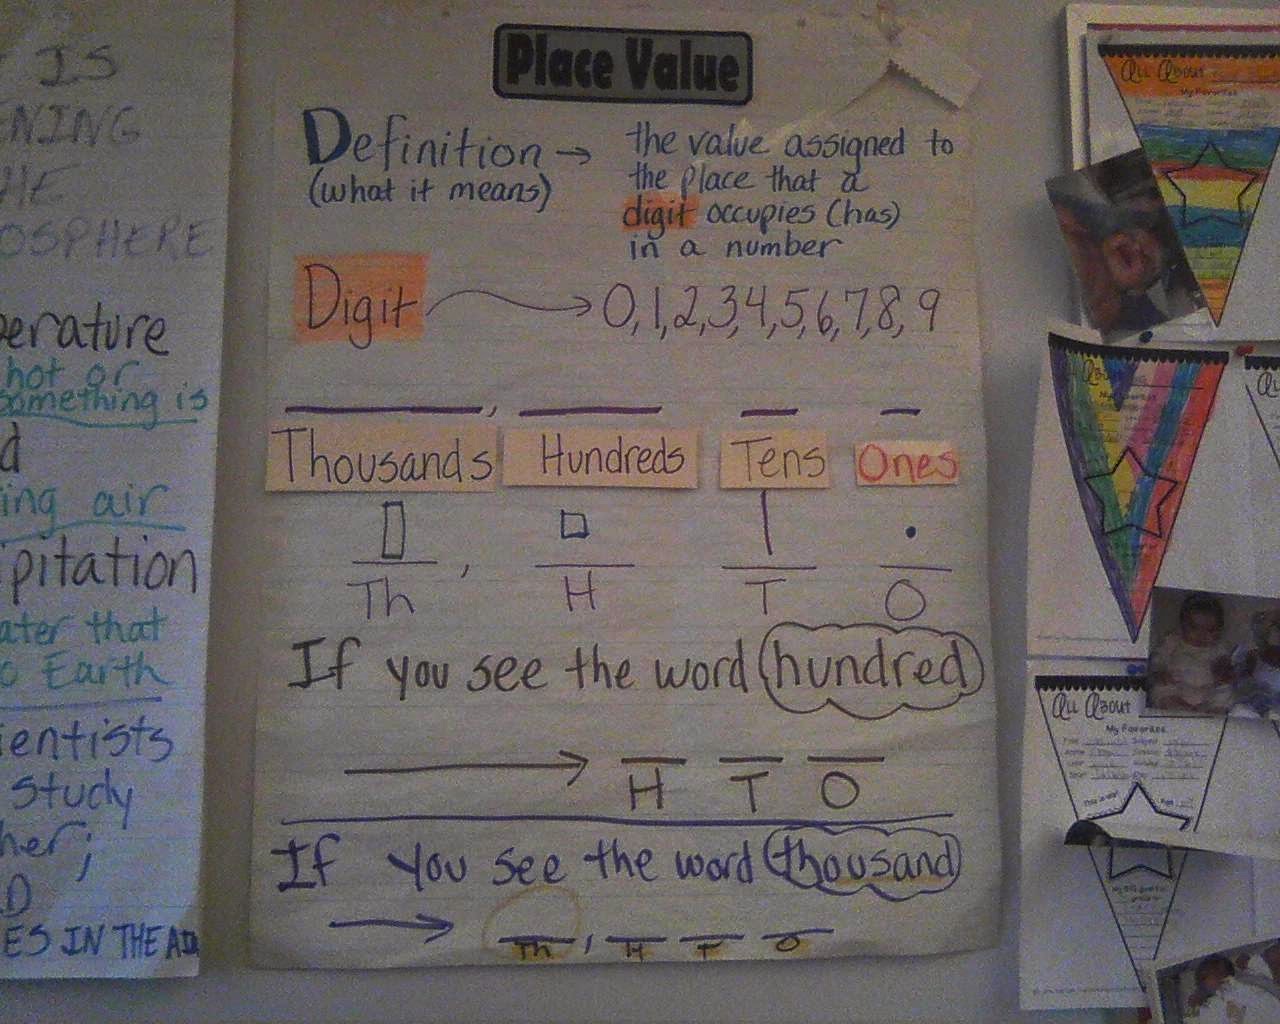 IS
ENING
HE
OSPHERE
perature
hot or
something is
d
ing air
ipitation
ater that
o Earth
ientists
study
her;
D
ES IN THE AIR
Place Value
Definition → the value assigned to
(what it means) the place that a
digit occupies (has)
in a number
Digit → 0,1,2,3,4,5,6,7,8,9
Thousands Hundreds Tens Ones
Th , H T O
If you see the word hundred
→ H T O
If you see the word thousand
→ Th , H T O
All About
My Favorites
All About
All About
My Favorites